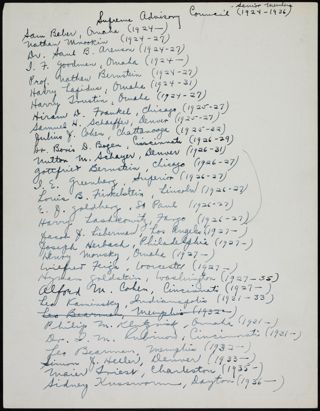 Supreme Advisory Council - Senior Members (1924-1936)
Sam Beber, Omaha (1924—
Nathan Mnookin (1924-27)
Dr. Saul B. Arenson (1924-27)
I. F. Goodman, Omaha (1924—)
Prof. Nathan Bernstein (1924-27)
Harry Lapidus, Omaha (1924-31)
Harry Trustin, Omaha (1924-27)
Hiram D. Frankel, Chicago (1925-27)
Samuel H. Schaeffer, Denver (1925-27)
Julius J. Cohen, Chattanooga (1925-
Dr. Boris D. Bogen, Cincinnati (1926-29)
Milton M. Schayer, Denver (1926-31)
Gottfried Bernstein, Chicago (1926-27)
I. E. Greenberg Superior (1926-27)
Louis B. Finkelstein, Lincoln (1926-27)
E. J. Goldberg, St Paul (1926-27)
Harry Lashkowitz, Fargo (1926-27)
Isaac J. Liberman, Los Angeles (1927-)
Joseph Herbach, Philadelphia (1927-)
Henry Monsky, Omaha (1927—)
Wilfred Feiga, Worcester (1927—)
Hyman Goldstein, Washington (1927-35)
Alfred M. Cohen, Cincinnati (1927—)
Leo Kaminsky, Indianapolis (1931-33)
Leo Bearman, Memphis (1932—
Philip M. Klutznick, Omaha (1931-)
Dr. I. M. Rubinow, Cincinnati (1931-)
Leo Bearman, Memphis (1932-)
Simon J. Heller, Denver (1933—)
Maier Triest, Charleston (1935-)
Sidney Kusworm, Dayton (1936—)